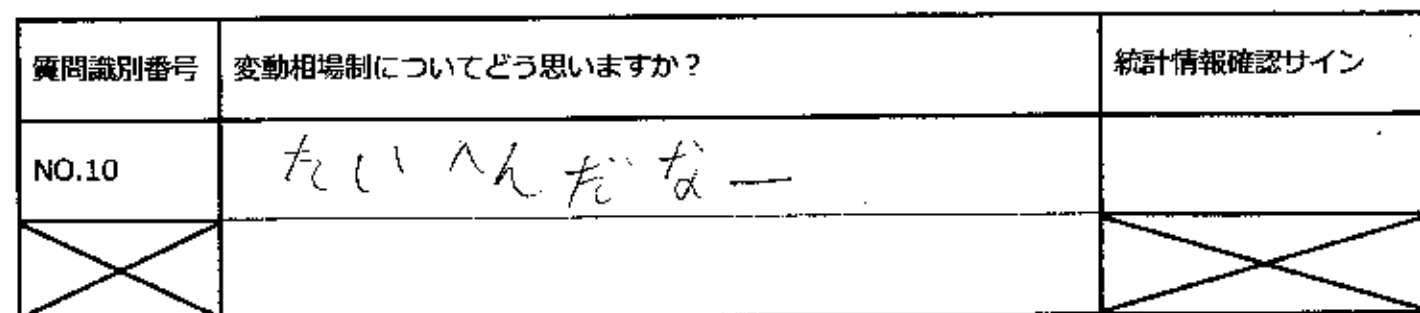 質問識別番号 変動相場制についてどう思いますか? 統計情報確認サイン
NO.10 たいへんだなー